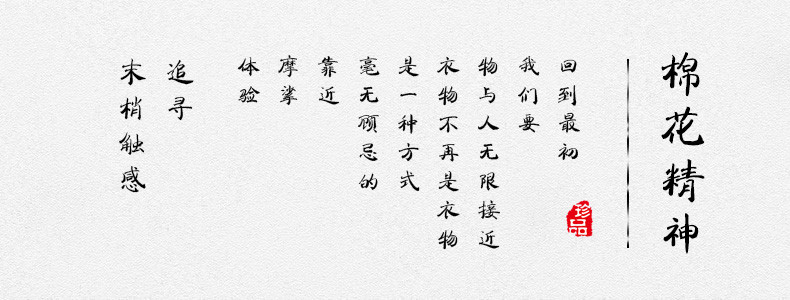 棉花精神
珍品
回到最初
我们要
物与人无限接近
衣物不再是衣物
是一种方式
毫无顾忌的
靠近
摩挲
体验
追寻
末梢触感